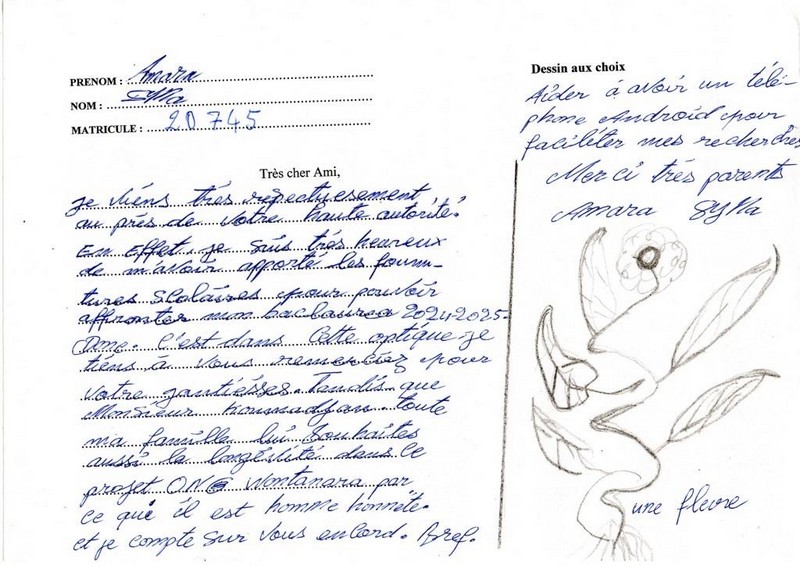 PRENOM : Amara
NOM : Sylla
MATRICULE : 20745
Très cher Ami,
je viens très respectyesement
au près de votre haute autorité.
En Effet, je suis très heureux
de m'avoir apporté les fourni-
tures Scolaires pour pouvoir
affronter mon baclaurea 2024-2025.
C'est dans Cette optique je
tiens à vous remerciez pour
votre gantiésses. Tandis que
Monsieur toute
ma famille lui Souhaites
aussi la longévité dans Ce
projet ONG Wontanara par
Ce que il est homme honnête.
et je compte sur vous encord. Bref.
Dessin aux choix
Aider à avoir un télé-
phone Android pour
faciliter mes recherches
Merci très parents
Amara Sylla
une fleure